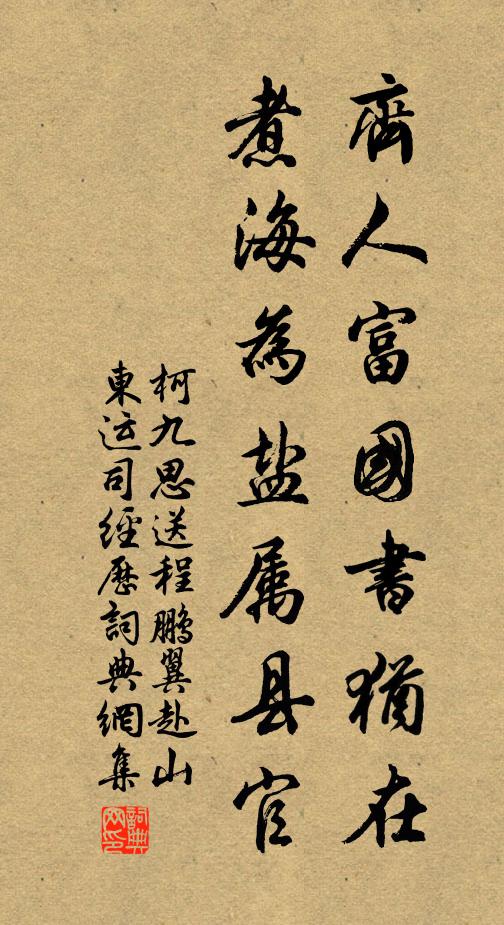 齊人富國書猶在
煮海為盐属县官
柯九思送程鹏翼赴山
東运司經歷詞典網集
詞典网印